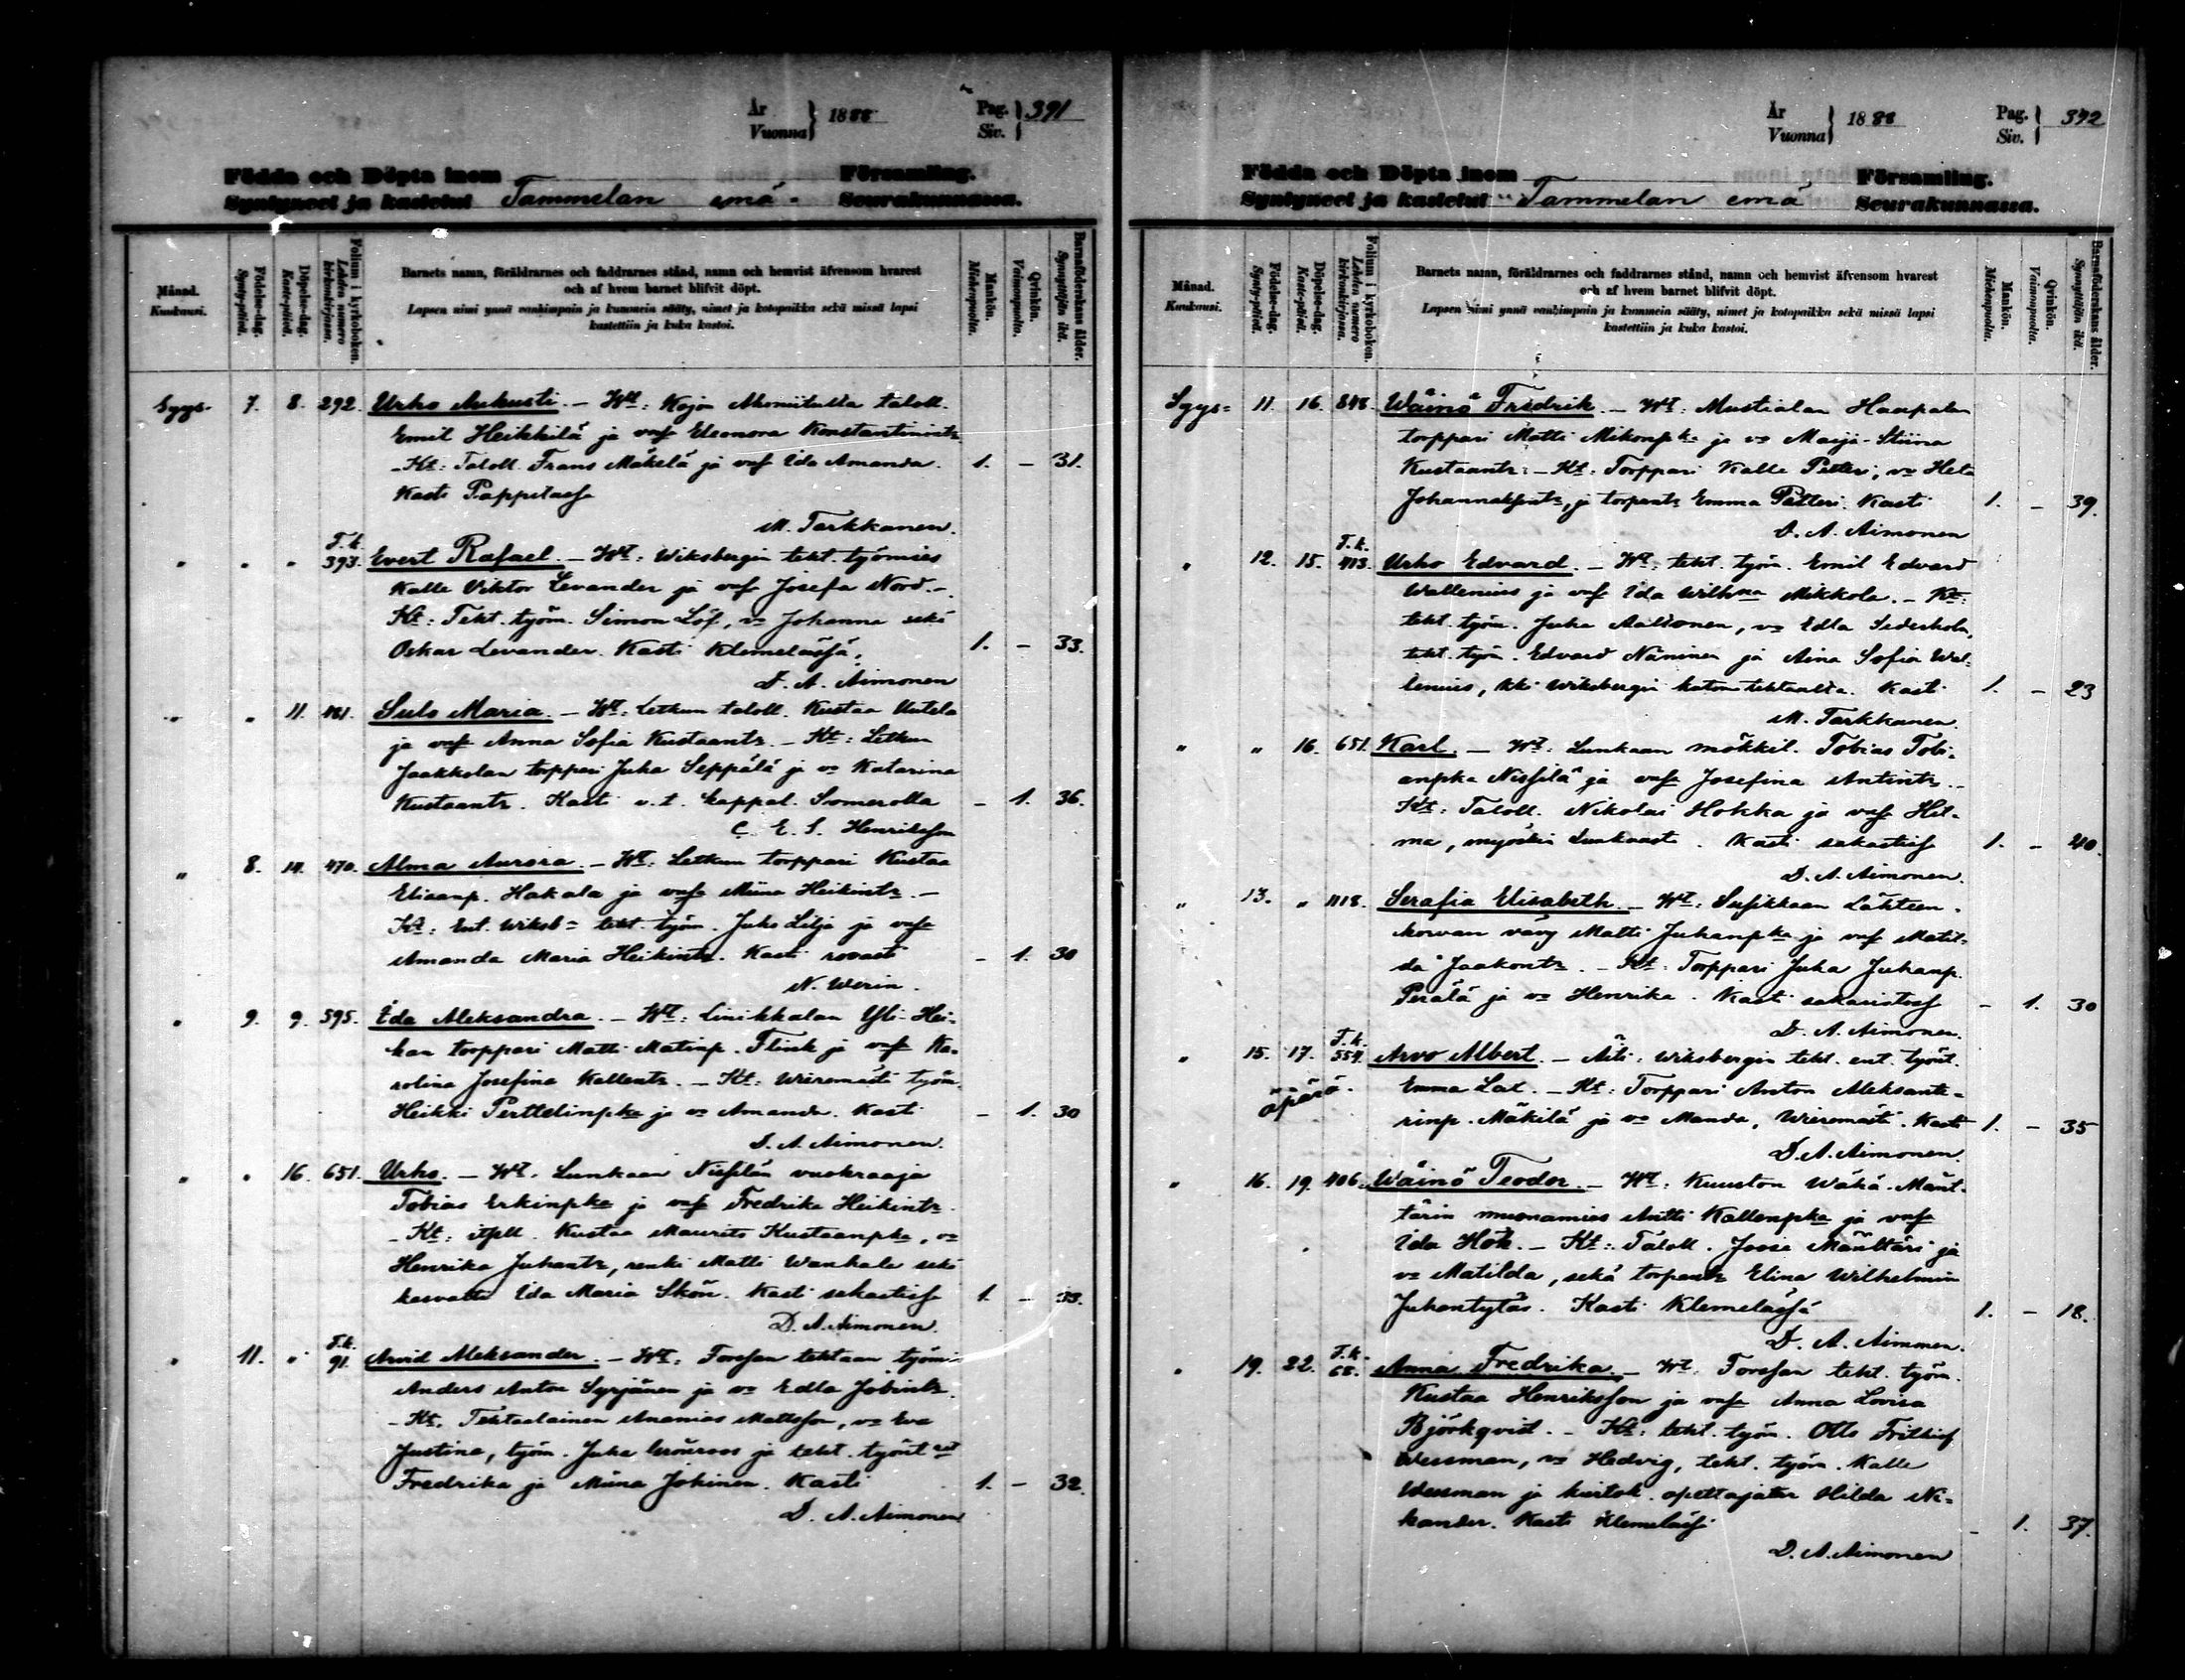 År Vuonna } 1888 Pag. Siv. } 391
Födda och Döpta inom Församling.
Syntyneet ja kastetut Tammelan emä- Seurakunnassa.
Månad. Kuukausi.
Födelse-dag. Synty-päivä.
Döpelse-dag. Kaste-päivä.
Folium i kyrkoboken. Lehden numero kirkonkirjassa.
Barnets namn, föräldrarnes och faddrarnes stånd, namn och hemvist äfvensom hvarest
och af hvem barnet blifvit döpt.
Lapsen nimi ynnä vanhimpain ja kummein sääty, nimet ja kotopaikka sekä missä lapsi
kastettiin ja kuka kastoi.
Mankön. Miehenpuolta.
Qvinkön. Vaimonpuolta.
Barnaföderskans ålder. Synnyttäjän ikä.
Syys- 7. 8. 292. Urho Aukusti. – Wt: Kojo taloll.
Emil Heikkilä ja vmsa Eleonora Konstantinintr
– Kt: Taloll. Frans Mäkelä ja vmsa Ida Amanda. 1. – 31.
Kasti Pappilassa
M. Tarkkanen.
" " " T.k. 393. Evert Rafael. – Wt: Wiksbergin teht. työmies
Kalle Viktor Levander ja vmsa Josefa Nord. –
Kt: Teht. työm. Simon Löf, vo Johanna sekä
Oskar Levander. Kasti Klemelässä. 1. – 33.
D. A. Aimonen
" " 11. 461. Sulo Maria. – Wt: Letkun taloll. Kustaa Uutela
ja vmsa Anna Sofia Kustaantr. – Kt: Letkun
Jaakkolan torppari Juha Seppälä ja vo Katarina
Kustaantr. Kasti v.t. kappal. Somerolla – 1. 36.
C. E. S. Henriksson
" 8. 14. 470. Alma Aurora. – Wt: Letkun torppari Kustaa
Eliaanp. Hakala ja vmsa Miina Heikintr. –
Kt: Ent. Wiksb= teht. työm. Juho Lilja ja vmsa
Amanda Maria Heikintr. Kasti rovasti – 1. 30
N. Werin.
" 9. 9. 595. Ida Aleksandra. – Wt: Linikkalan Yli-Hei-
kan torppari Matti Matinp. Flink ja vmsa Ka-
rolina Josefina Kallentr. – Kt: Wieremästi työm.
Heikki Perttelinpka ja vo Amanda. Kasti – 1. 30
D. A. Aimonen.
" " 16. 651. Urho. – Wt. Lunkaan Nissilän vuokraaja
Tobias Erkinpka ja vmsa Fredrika Heikintr.
– Kt: itsell. Kustaa Maurits Kustaanpka, vo
Henrika Juhantr, renki Matti Wanhala sekä
kasvatti Ida Maria Skön. Kasti sakastissa 1. – 33.
D. A. Aimonen.
" 11. " T.k. 91. Arvid Aleksander. – Wt: Forssan tehtaan työmi
Anders Anton Syrjänen ja vo Edla
– Kt. Tehtaalainen Ananias Mattsson, vo Eva
Justina, työm. Juha Grönroos ja teht. työnt
Fredrika ja Miina Jokinen. Kasti 1. – 32.
D. A. Aimonen
År Vuonna } 1888 Pag. Siv. } 392
Födda och Döpta inom Församling.
Syntyneet ja kastetut Tammelan emä Seurakunnassa.
Månad. Kuukausi.
Födelse-dag. Synty-päivä.
Döpelse-dag. Kaste-päivä.
Folium i kyrkoboken. Lehden numero kirkonkirjassa.
Barnets namn, föräldrarnes och faddrarnes stånd, namn och hemvist äfvensom hvarest
och af hvem barnet blifvit döpt.
Lapsen nimi ynnä vanhimpain ja kummein sääty, nimet ja kotopaikka sekä missä lapsi
kastettiin ja kuka kastoi.
Mankön. Miehenpuolta.
Qvinkön. Vaimonpuolta.
Barnaföderskans ålder. Synnyttäjän ikä.
Syys= 11. 16. 848. Wäinö Fredrik. – Wt: Mustialan Haapalan
torppari Matti Mikonpka ja vo Maija-Stiina
Kustaantr: – Kt: Torppari Kalle Pätteri, vo Heta
ja torpantr Emma Pätteri. Kasti 1. – 39.
D. A. Aimonen
" 12. 15. T.k. 413. Urho Edvard. – Wt: teht. työm. Emil Edvard
Wallenius ja vmsa Ida Wilhna Mikkola. – Kt:
teht. työm. Juha Aaltonen, vo Edla Sederholm,
teht. työm. Edvard Näninen ja Aina Sofia Wal-
lenius, kki Wiksbergin tehtaalta. Kasti 1. – 23
M. Tarkkanen.
" " 16. 651. Karl. – Wt: Lunkaan mökkil. Tobias Tobi-
anpka Nissilä ja vmsa Josefina Antintr. –
Kt: Taloll. Nikolai Hokka ja vmsa Hil-
ma, myöskin Lunkaasta. Kasti sakastissa 1. – 40.
D. A. Aimonen.
" 13. " 1118. Serafia Elisabeth. – Wt: Susikkaan Lähteen-
korvan vävy Matti Juhanpka ja vmsa Matil-
da Jaakontr. – Kt: Torppari Juha Juhanp.
Perälä ja vo Henrika. Kasti – 1. 30
D. A. Aimonen.
" 15. 17. T.k. 554. Arvo Albert. – Äiti: Wiksbergin teht. ent. työnt.
äpärä. Emma Lax. – Kt: Torppari Anton Aleksante-
rinp. Mäkilä ja vo Manda, Wieremästi. Kasti 1. – 35
D. A. Aimonen.
" 16. 19. 406. Wäinö Teodor. – Wt: Kuuston Wähä-Mänt-
tärin muonamies Antti Kallenpka ja vmsa
Ida Hök. – Kt: Taloll. Joose Mänttäri ja
vo Matilda, sekä torpantr Elina Wilhelmina
Juhontytär. Kasti Klemelässä 1. – 18.
D. A. Aimonen.
" 19. 22. T.k. 68. Anna Fredrika. – Wt. Forssan teht. työm.
Kustaa Henriksson ja vmsa Anna Lovisa
Björkqvist. – Kt: teht. työm. Otto Frithiof
Wessman, vo Hedvig, teht. työm. Kalle
Wessman ja opettajatar Hilda Ni-
kander. Kasti Klemelässä – 1. 37.
D. A. Aimonen